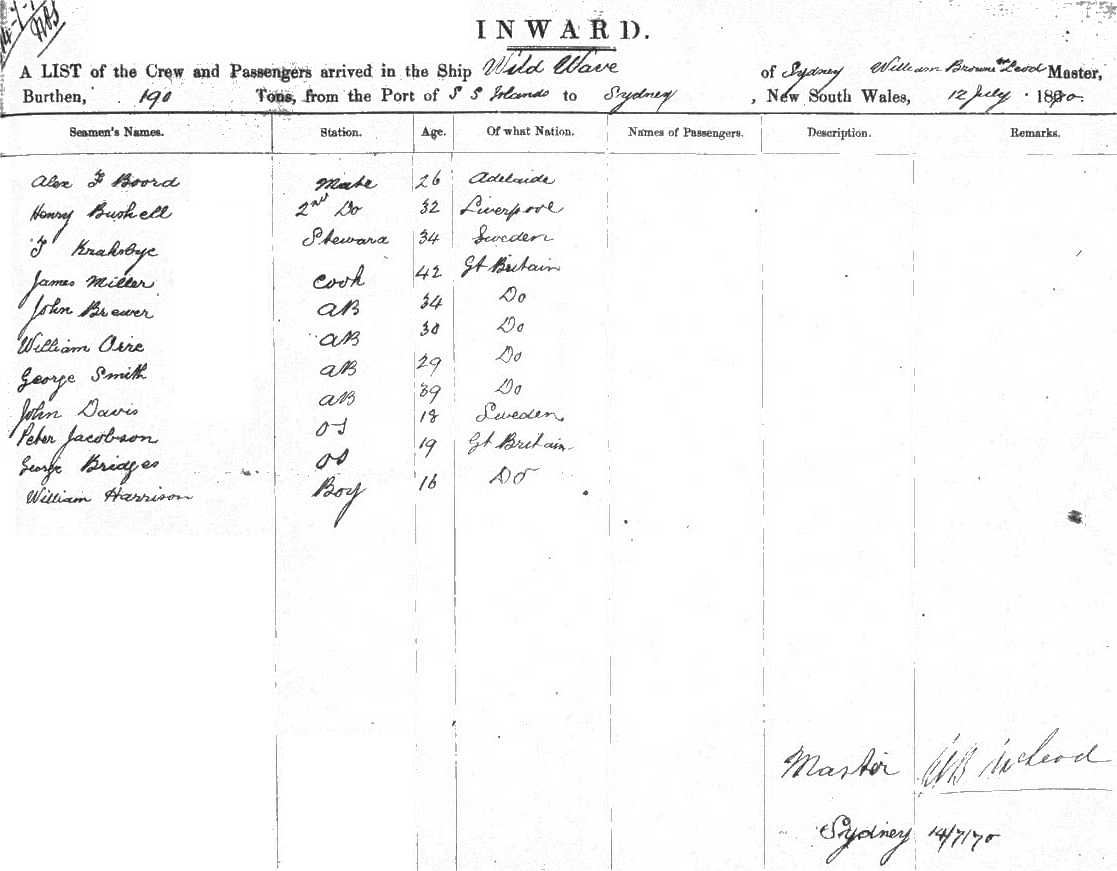 INWARD.
A LIST of the Crew and Passengers arrived in the Ship Wild Wave of Sydney William Browne McLeod Master,
Burthen, 190 Tons, from the Port of S S Islands to Sydney, New South Wales, 12 July 1870.
Seamen's Names. Station. Age. Of what Nation. Names of Passengers. Description. Remarks.
Alex F Boord Mate 26 Adelaide
Henry Bushell 2nd Do 32 Liverpool
F Steward 34 Sweden
James Miller Cook 42 Gt Britain
John Brewer AB 34 Do
William AB 30 Do
George Smith AB 29 Do
John Davis AB 39 Do
Peter Jacobson OS 18 Sweden
George Bridges OS 19 Gt Britain
William Harrison Boy 16 Do
Master WB McLeod
Sydney 14/7/70